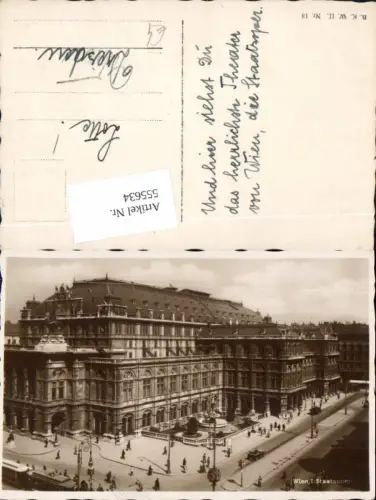 B. K. W. II. Nr. 18
64
Dresden.
Lotte!
Und hier siehst Du
das herrlichste Theater
von Wien, die Staatsoper.
Artikel Nr.
555634
Wien, I. Staatsoper